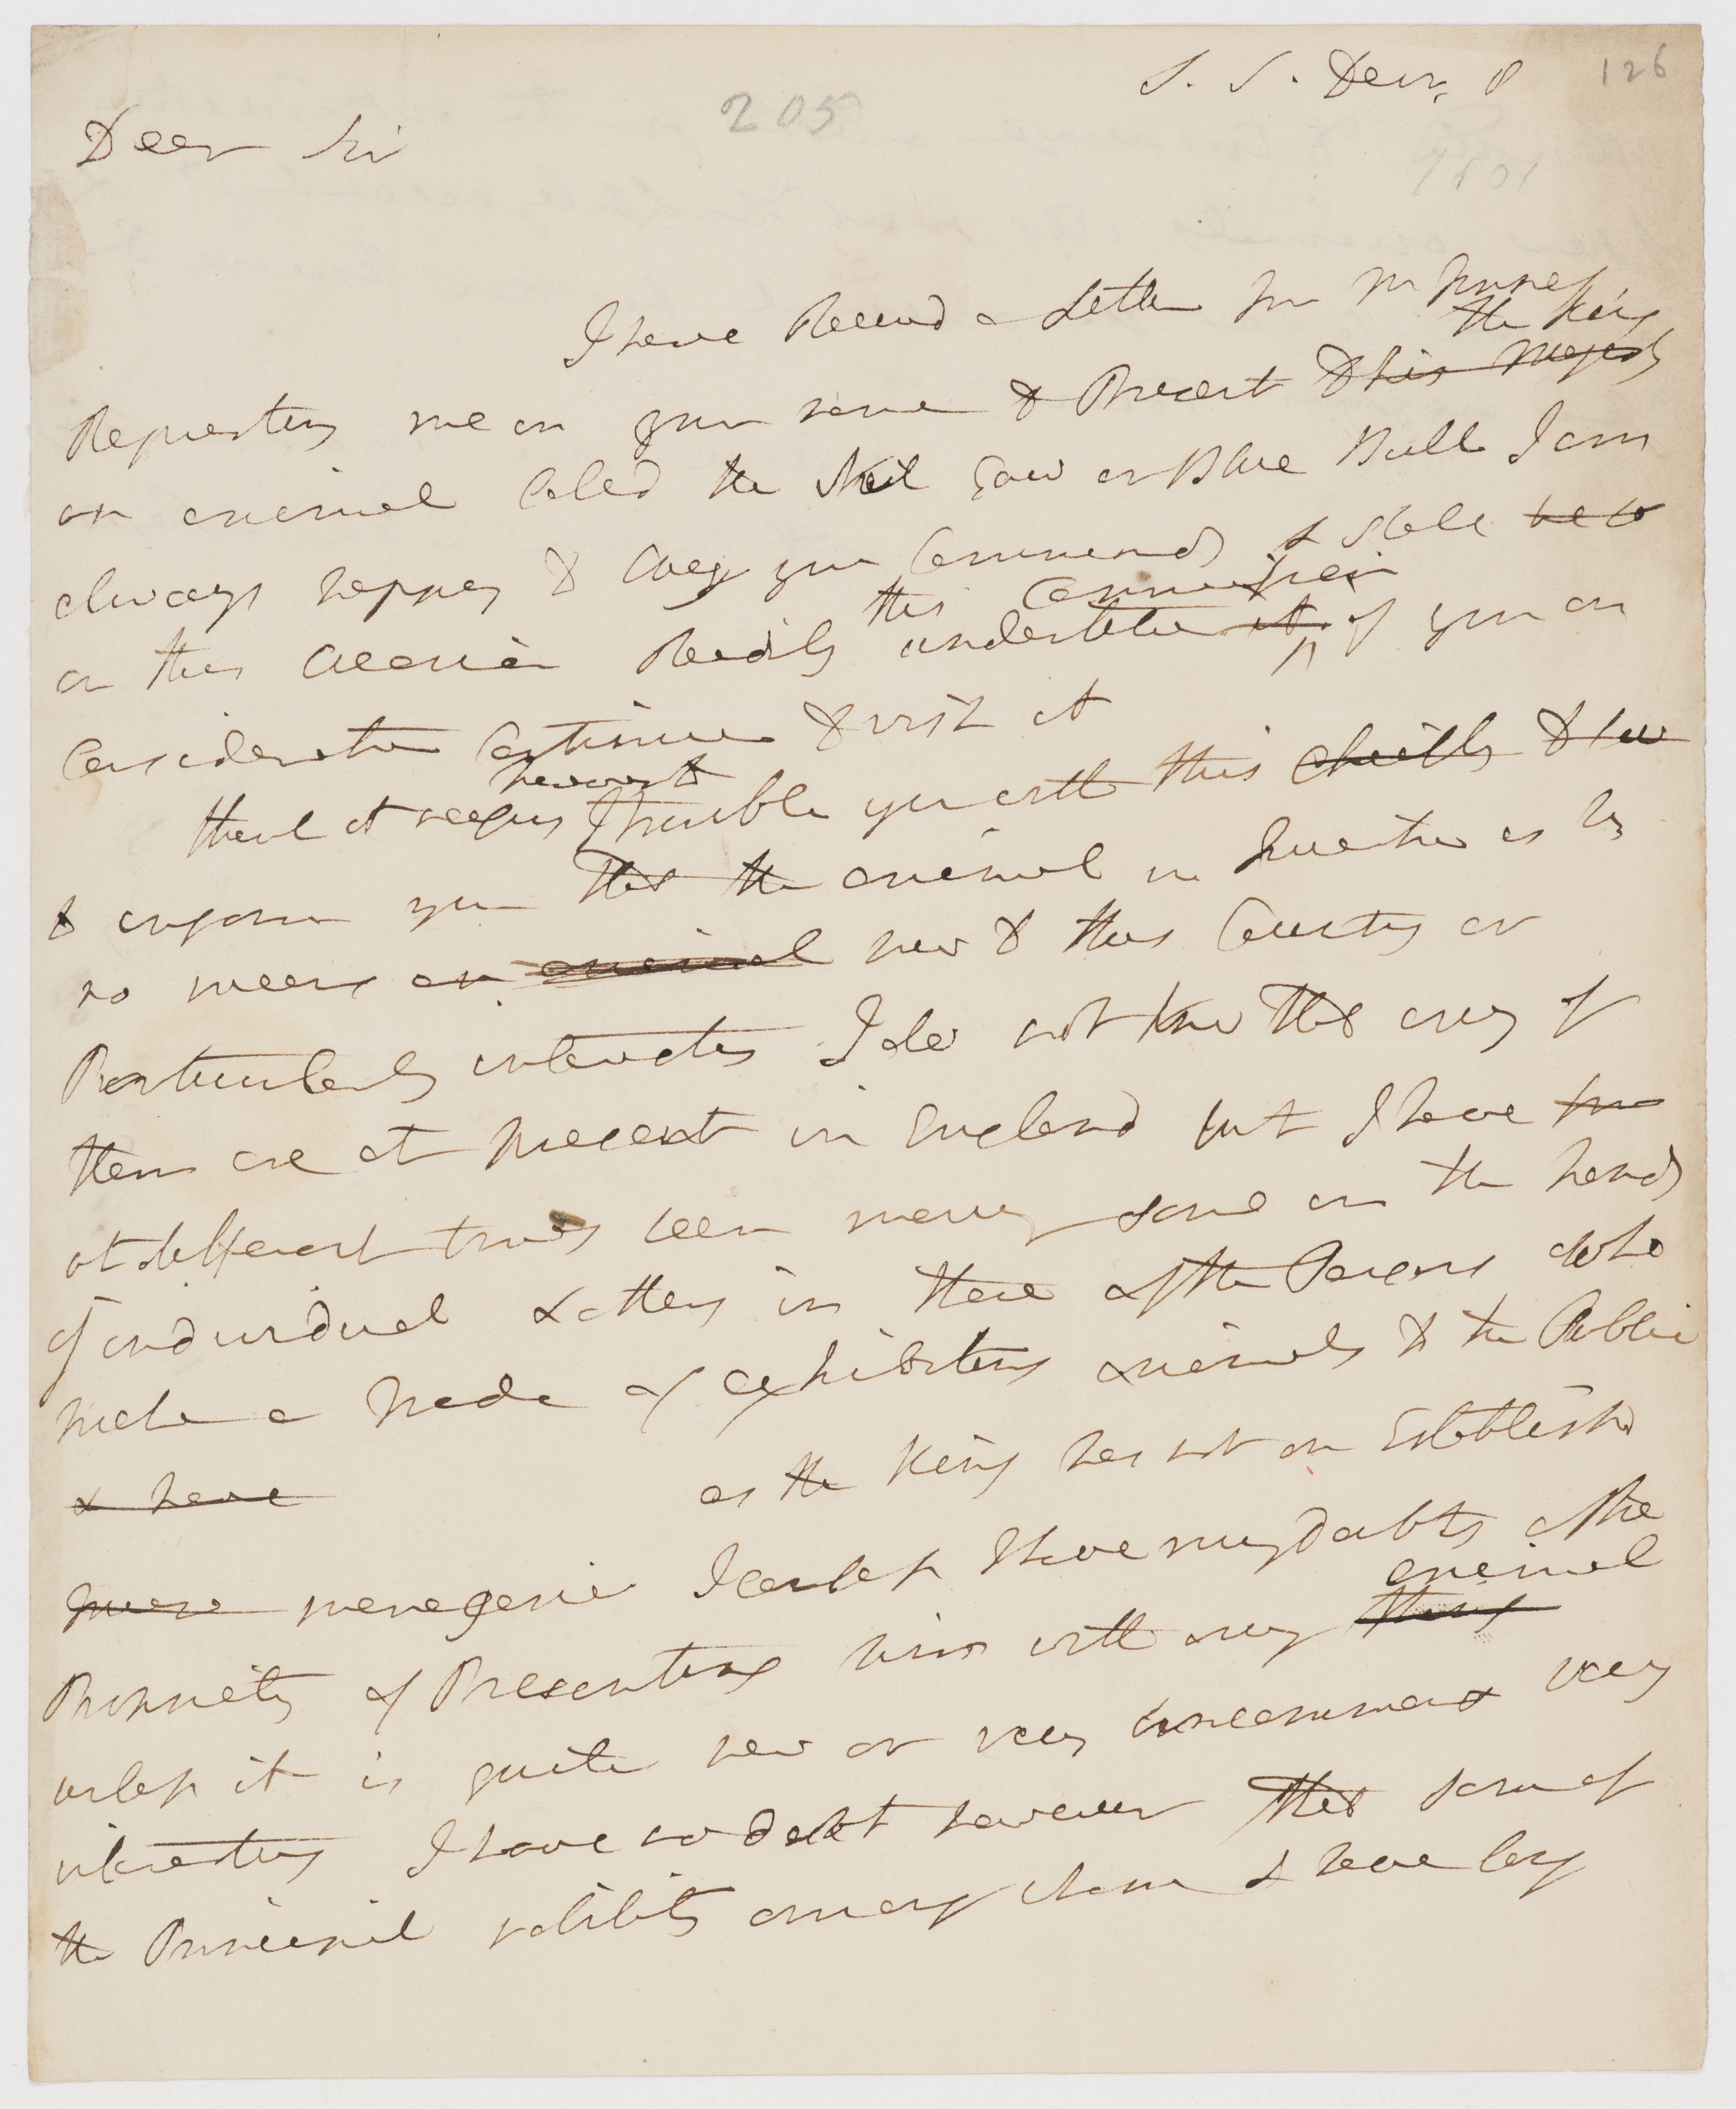 126
S. S. Decr. 8
205
Dear Sir
1801
I have Receivd a Letter from Mr
the King
Requesting me in your name to Present to his Majesty
an animal Calld the Neil Gaw or Blue Bull I am
always happy to obey your Commands & shall
this Commission
on this occasion Readily undertake it if you on
Consideration Continue to wish it
however
think it necessary to trouble you with this chiefly to
to inform you that the animal in Question is by
no means an animal new to this Country or
Particularly interesting I do not know that any of
them are at present in England but I have
at different times seen many some in the hands
of individual & others in those of the Persons who
make a trade of exhibiting animals to the Public
& have as the King has not an Establishd
menagerie I confess I have my doubts of the
animal
Propriety of Presenting him with any thing
unless it is quite new or very uncommon & very
interesting I have no doubt however that some of
the Principal nobility among whom I have